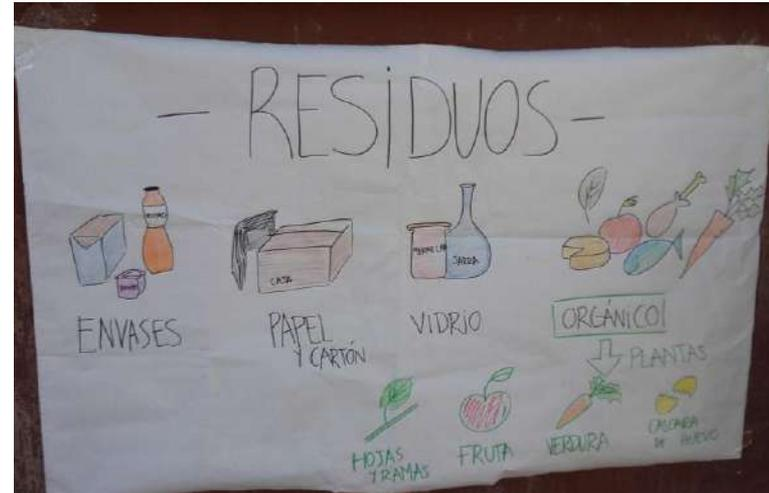 - RESIDUOS -
MERMELADA
JARRA
CAJA
ENVASES
PAPEL
Y CARTÓN
VIDRIO
ORGÁNICO
PLANTAS
HOJAS
Y RAMAS
FRUTA
VERDURA
CASCARA
DE HUEVO